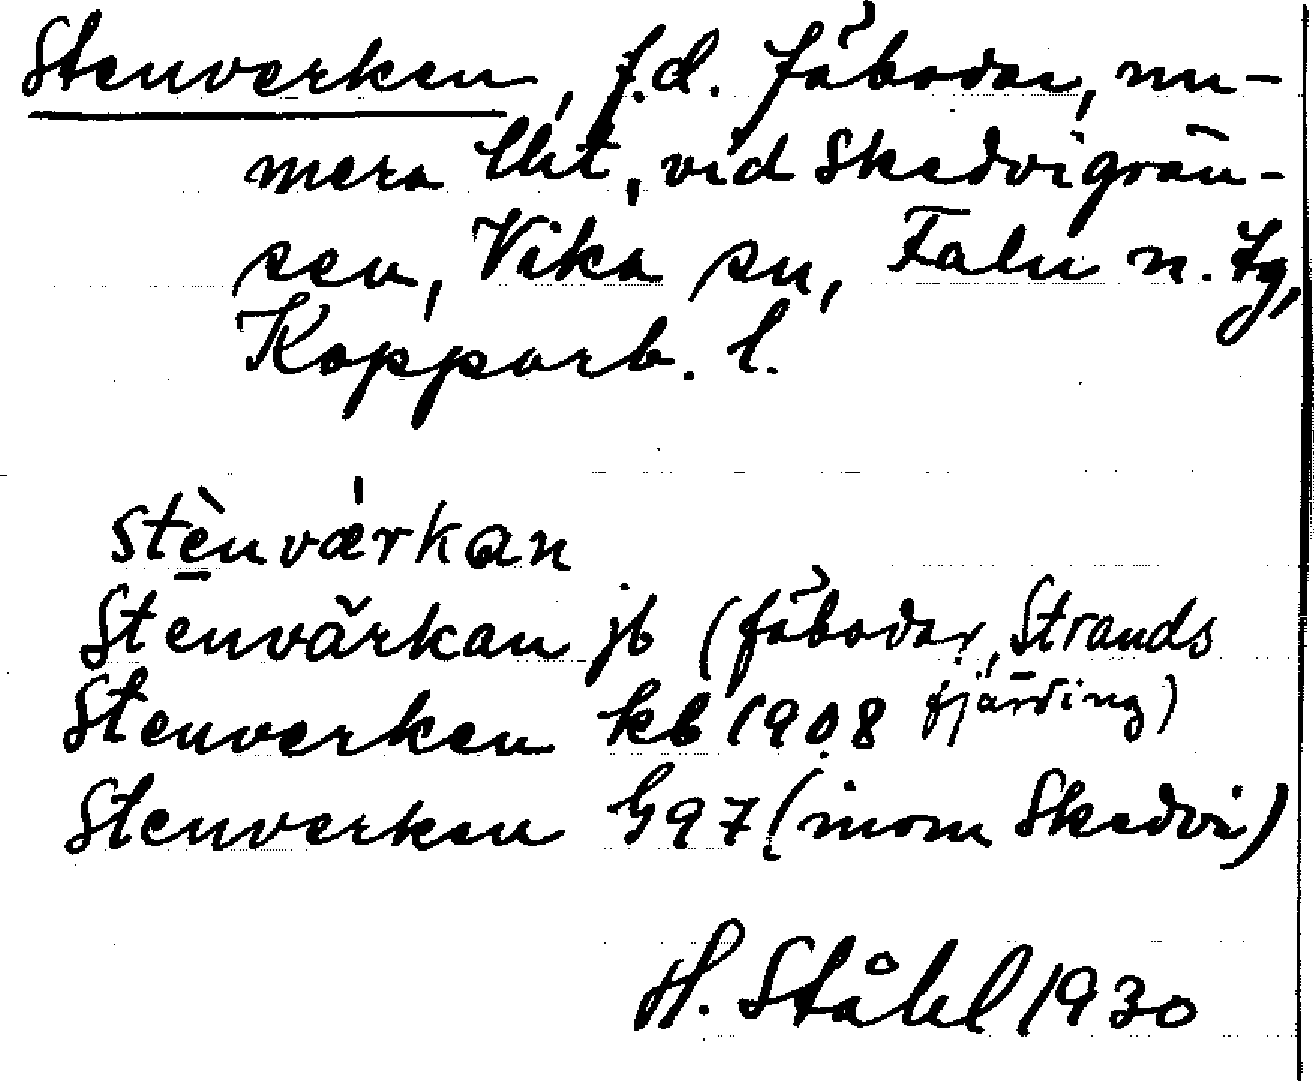 Stenverken, f.d. fäbodar, nu-
mera lht, vid Skedvigrän-
sen, Vika sn, Falu n. tg,
Kopparb. l.
stènvǽrkan
Stenvärkan jb (fäbodar, Strands
fjärding)
Stenverken kb 1908
Stenverken G97 (inom Skedvi)
H. Ståhl 1930